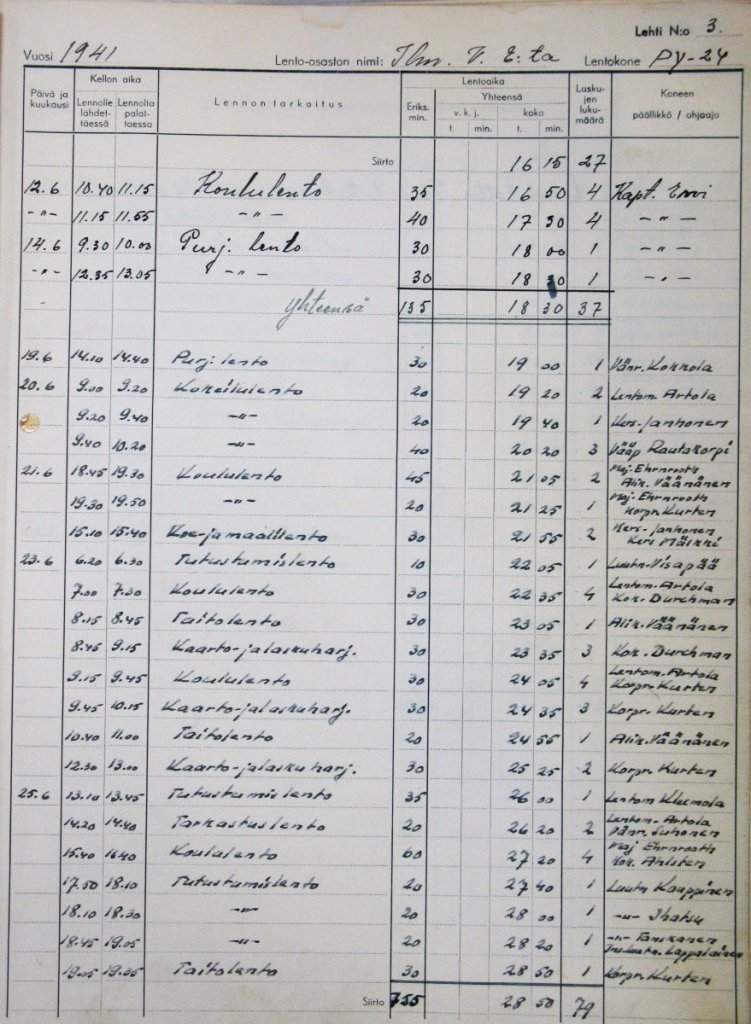 Lehti N:o 3.
Vuosi 1941 Lento-osaston nimi: Ilm. V. E:ta Lentokone PY-24
Päivä ja kuukausi Kellon aika Lennolle lähdettäessä Lennolta palattaessa Lennon tarkoitus Lentoaika Eriks. min. Yhteensä v. k. j. t. min. koko t. min. Laskujen lukumäärä Koneen päällikkö / ohjaaja
Siirto 16 15 27
12.6 10.40 11.15 Koululento 35 16 50 4 Kapt. Ervi
-"- 11.15 11.55 -"- 40 17 30 4 -"-
14.6 9.30 10.00 Purj. lento 30 18 00 1 -"-
-"- 12.35 13.05 -"- 30 18 30 1 -"-
yhteensä 135 18 30 37
19.6 14.10 14.40 Purj. lento 30 19 00 1 Vänr. Kokkola
20.6 9.00 9.20 Kokeilulento 20 19 20 2 Lentom. Artola
9.20 9.40 -"- 20 19 40 1 Kers. Janhonen
9.40 10.20 -"- 40 20 20 3 Vääp Rautakorpi
21.6 18.45 19.30 Koululento 45 21 05 2 Maj. Ehrnrooth Alik. Väänänen
19.30 19.50 -"- 20 21 25 1 Maj. Ehrnrooth Korpr. Kurten
15.10 15.40 Koe- ja maalilento 30 21 55 2 Kers. Janhonen Kers
23.6 6.20 6.30 Tutustumislento 10 22 05 1 Luutn. Visapää
7.00 7.30 Koululento 30 22 35 4 Lentom. Artola Kok. Durchman
8.15 8.45 Taitolento 30 23 05 1 Alik. Väänänen
8.45 9.15 Kaarto- ja laskuharj. 30 23 35 3 Kok. Durchman
9.15 9.45 Koululento 30 24 05 4 Lentom. Artola Korpr. Kurten
9.45 10.15 Kaarto- ja laskuharj. 30 24 35 3 Korpr. Kurten
10.40 11.00 Taitolento 20 24 55 1 Alik. Väänänen
12.30 13.00 Kaarto- ja laskuharj. 30 25 25 2 Korpr. Kurten
25.6 13.10 13.45 Tutustumislento 35 26 00 1 Lentom Klemola
14.20 14.40 Tarkastuslento 20 26 20 2 Lentom. Artola Vänr. Suhonen
15.40 16.40 Koululento 60 27 20 4 Maj Ehrnrooth Kok. Ahlsten
17.50 18.10 Tutustumislento 20 27 40 1 Luutn Kauppinen
18.10 18.30 -"- 20 28 00 1 -"- Ihatsu
18.45 19.05 -"- 20 28 20 1 -"- Tanskanen Lappalainen
19.05 19.35 Taitolento 30 28 50 1 Korpr. Kurten
Siirto 755 28 50 79